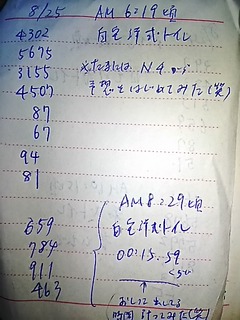 8/25 AM 6:19頃
4302 自宅洋式トイレ
5675
3155 又たまには N4
4507 予想をはじめてみた(笑)
87
67
94
81
AM 8:29頃
659 自宅洋式トイレ
784 00:15.59
911
463 おしっこ出してる
時間計ってみた(笑)